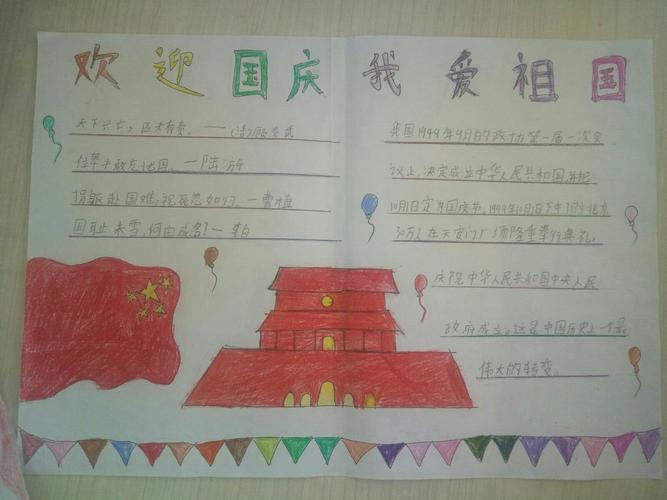 欢迎国庆 我爱祖国
天下兴亡，匹夫有责。——(清)顾炎武
位卑未敢忘忧国。—陆游
捐躯赴国难，视死忽如归。—曹植
国耻未雪，何由成名?—李白
我国1949年9月的政协第一届一次会
议上，决定成立中华人民共和国，并把
10月1日定为国庆节。1949年10月1日下午3时，北京
30万人在天安门广场隆重举行典礼，
庆祝中华人民共和国中央人民
政府成立。这是中国历史上一个最
伟大的转变。